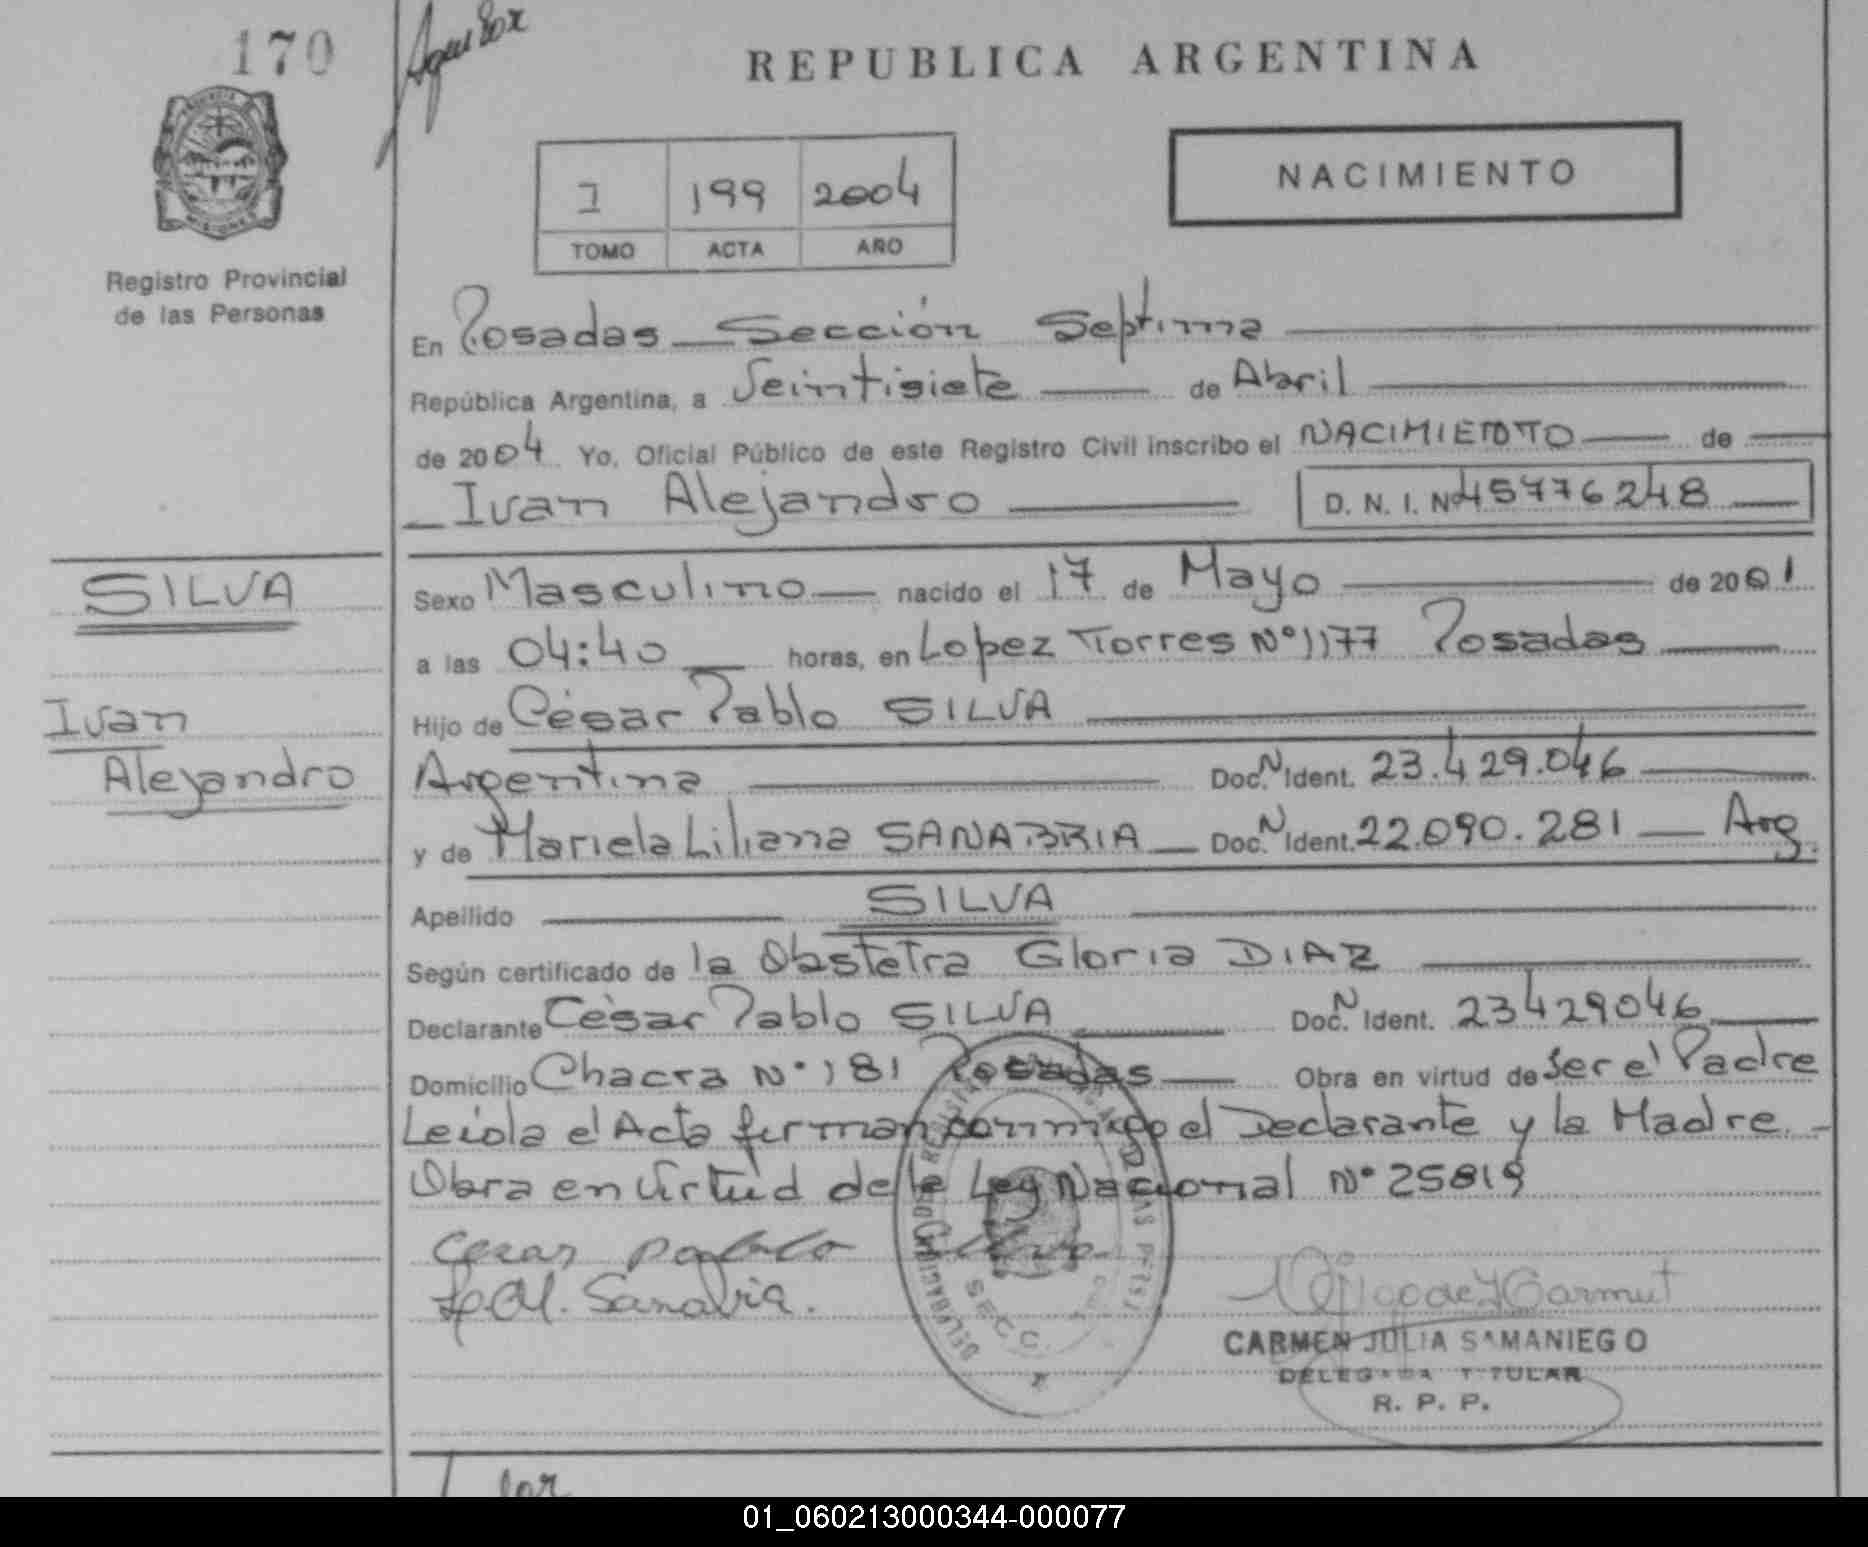 170
Registro Provincial
de las Personas
REPUBLICA ARGENTINA
NACIMIENTO
I 199 2004
TOMO ACTA AÑO
En Posadas Sección Septima
República Argentina, a Veintisiete de Abril
de 2004 Yo, Oficial Público de este Registro Civil inscribo el NACIMIENTO de
Ivan Alejandro D. N. I. Nº 45776248
SILVA
Ivan
Alejandro
Sexo Masculino nacido el 17 de Mayo de 2001
a las 04:40 horas, en Lopez Torres Nº 1177 Posadas
Hijo de César Pablo SILVA
Argentina Doc. N Ident. 23.429.046
y de Mariela Liliana SANABRIA Doc. N Ident. 22.090.281 Arg.
Apellido SILVA
Según certificado de la Obstetra Gloria DIAZ
Declarante César Pablo SILVA Doc. N Ident. 23429046
Domicilio Chacra Nº 181 Posadas Obra en virtud de Ser el Padre
Leida el Acta firman conmigo el Declarante y la Madre.
Obra en virtud de la Ley Nacional Nº 25819
Cezar Pablo Silva
Sanabria.
CARMEN JULIA SAMANIEGO
DELEGADA TITULAR
R. P. P.
01_060213000344-000077